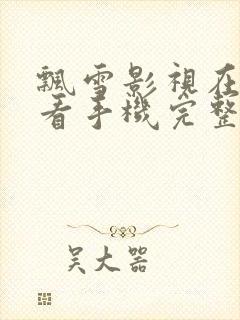 飄雪影視在
看手機完整
吴大器